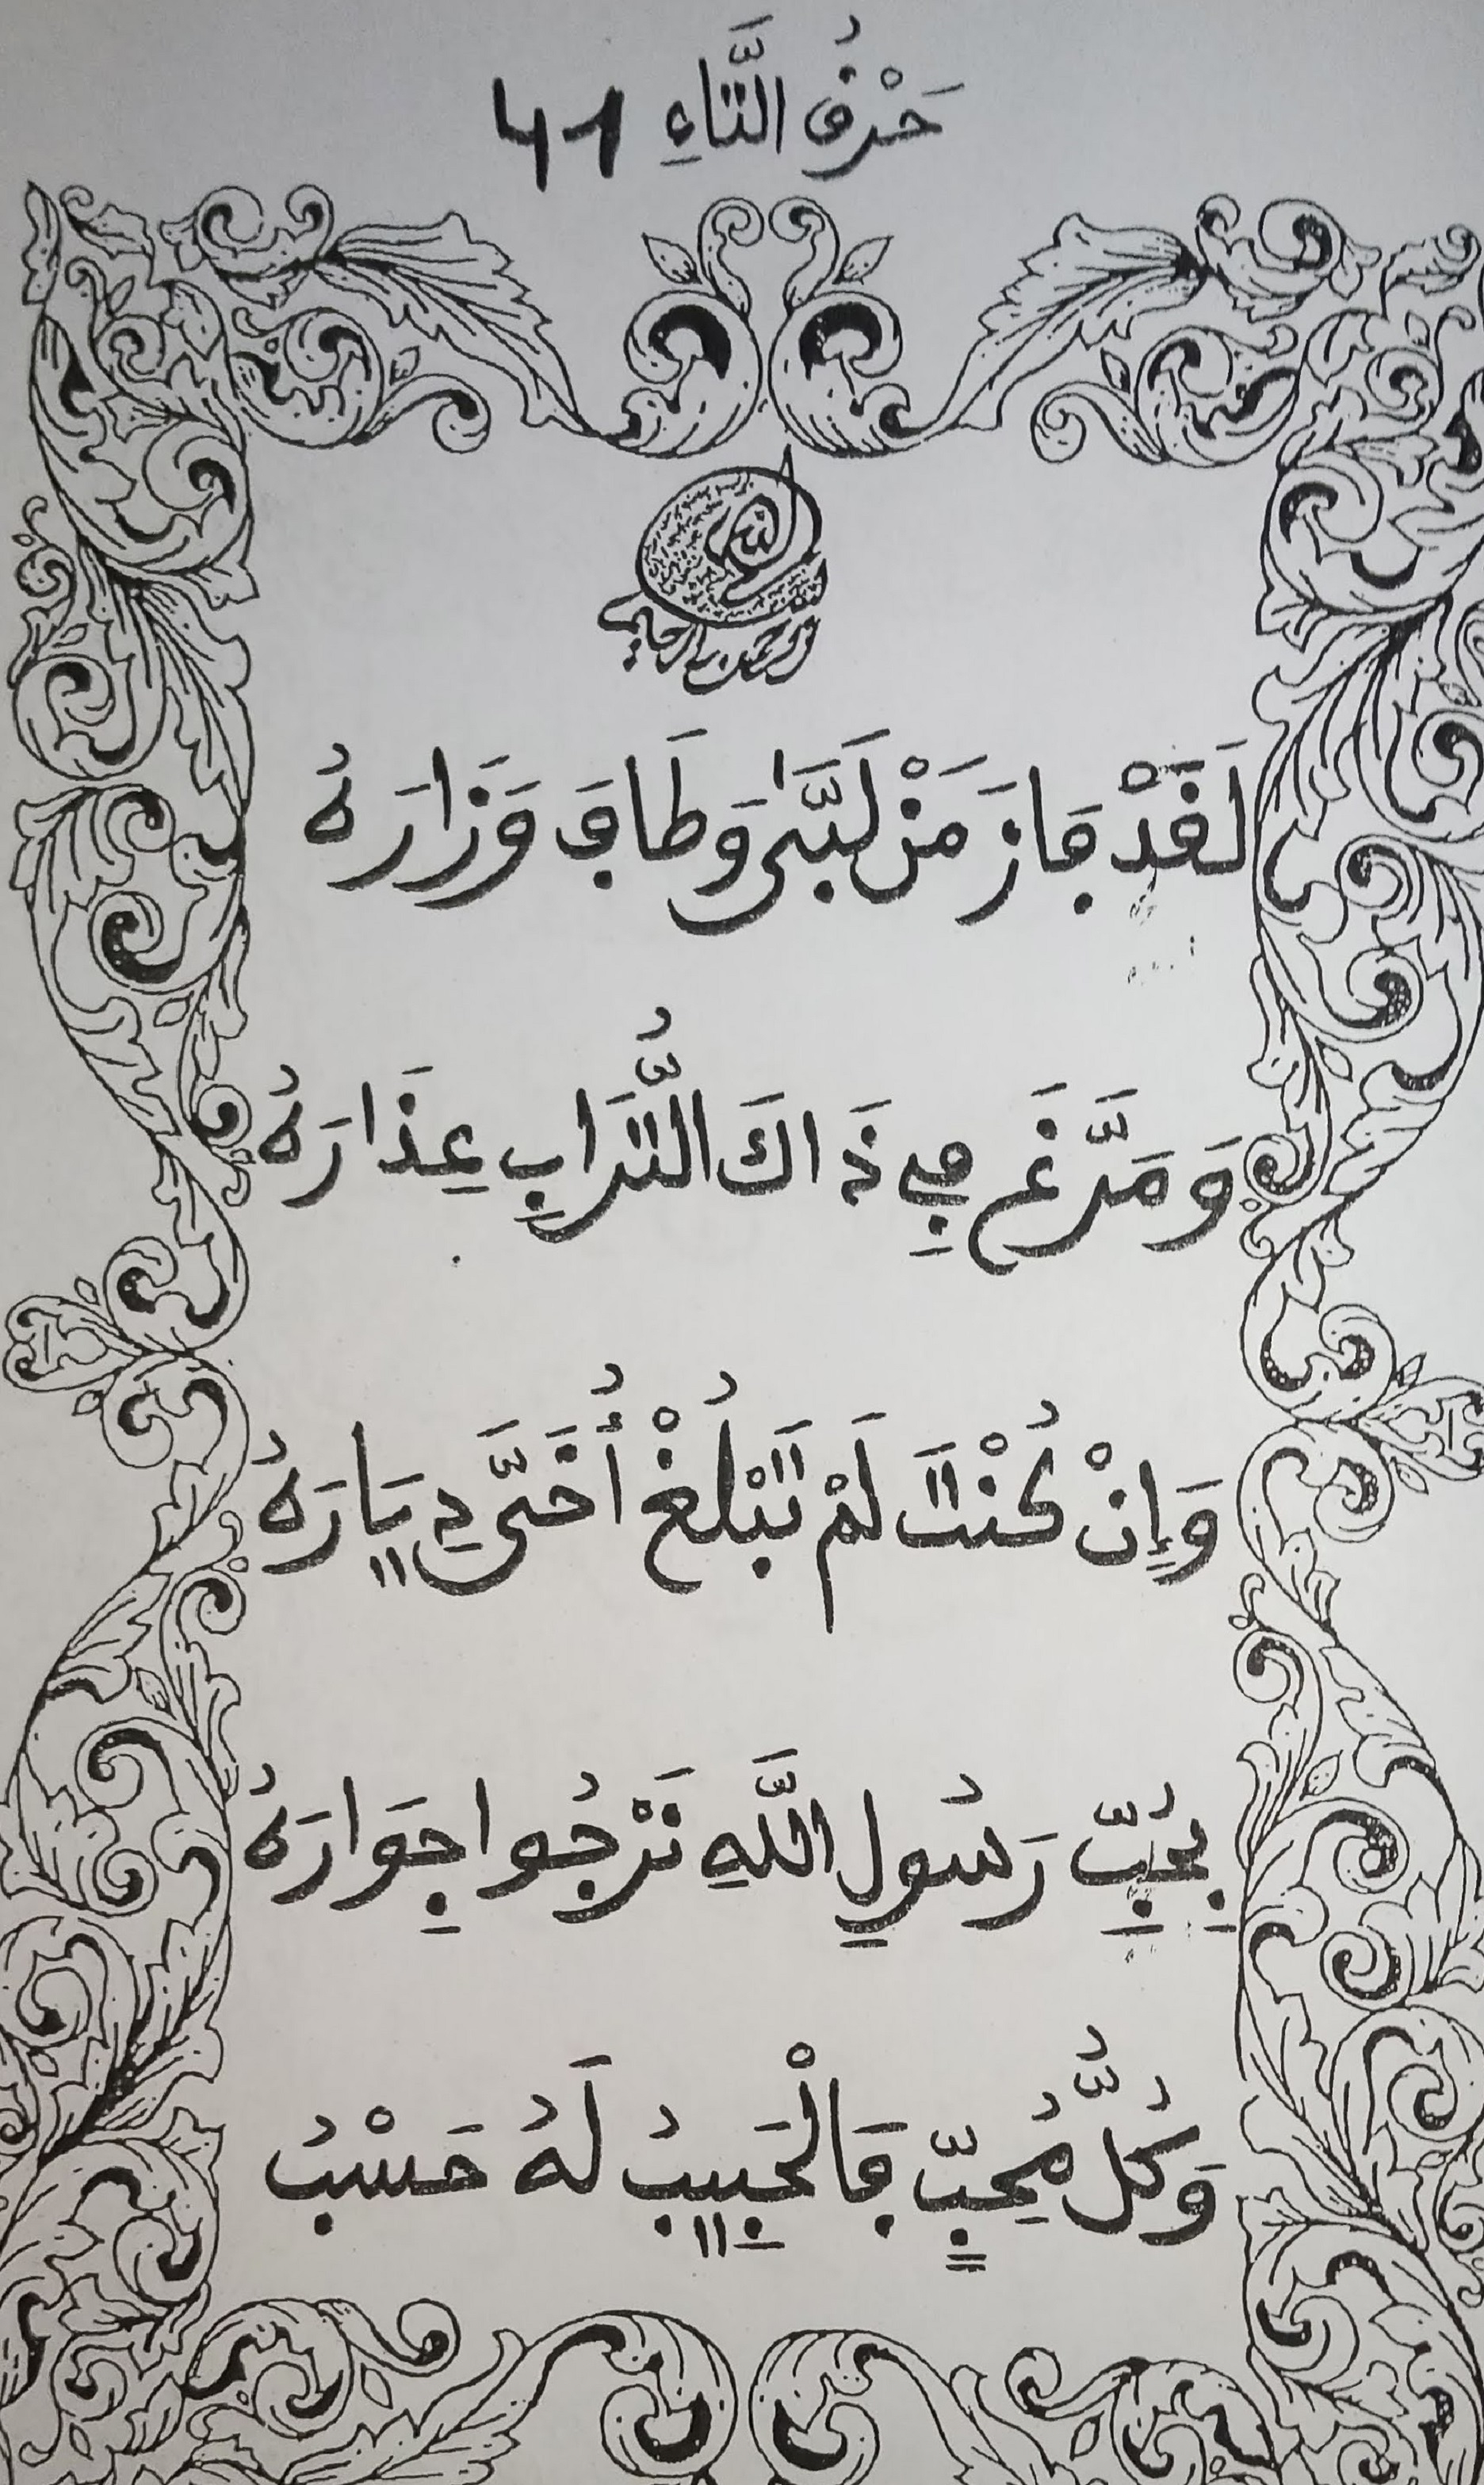 حَرْفُ التَّاءِ 41
بسم الله الرحمن الرحيم
لَقَدْ فَازَ مَنْ لَبَّىٰ وَطَافَ وَزَارَهُ
وَمَرَّغَ فِي ذَاكَ التُّرَابِ عِذَارَهُ
وَإِنْ كُنْتَ لَمْ تَبْلُغْ أُخَيَّ دِيَارَهُ
بِحُبِّ رَسُولِ اللَّهِ نَرْجُوا جِوَارَهُ
وَكُلُّ مُحِبٍّ فَالْحَبِيبُ لَهُ حَسْبُ